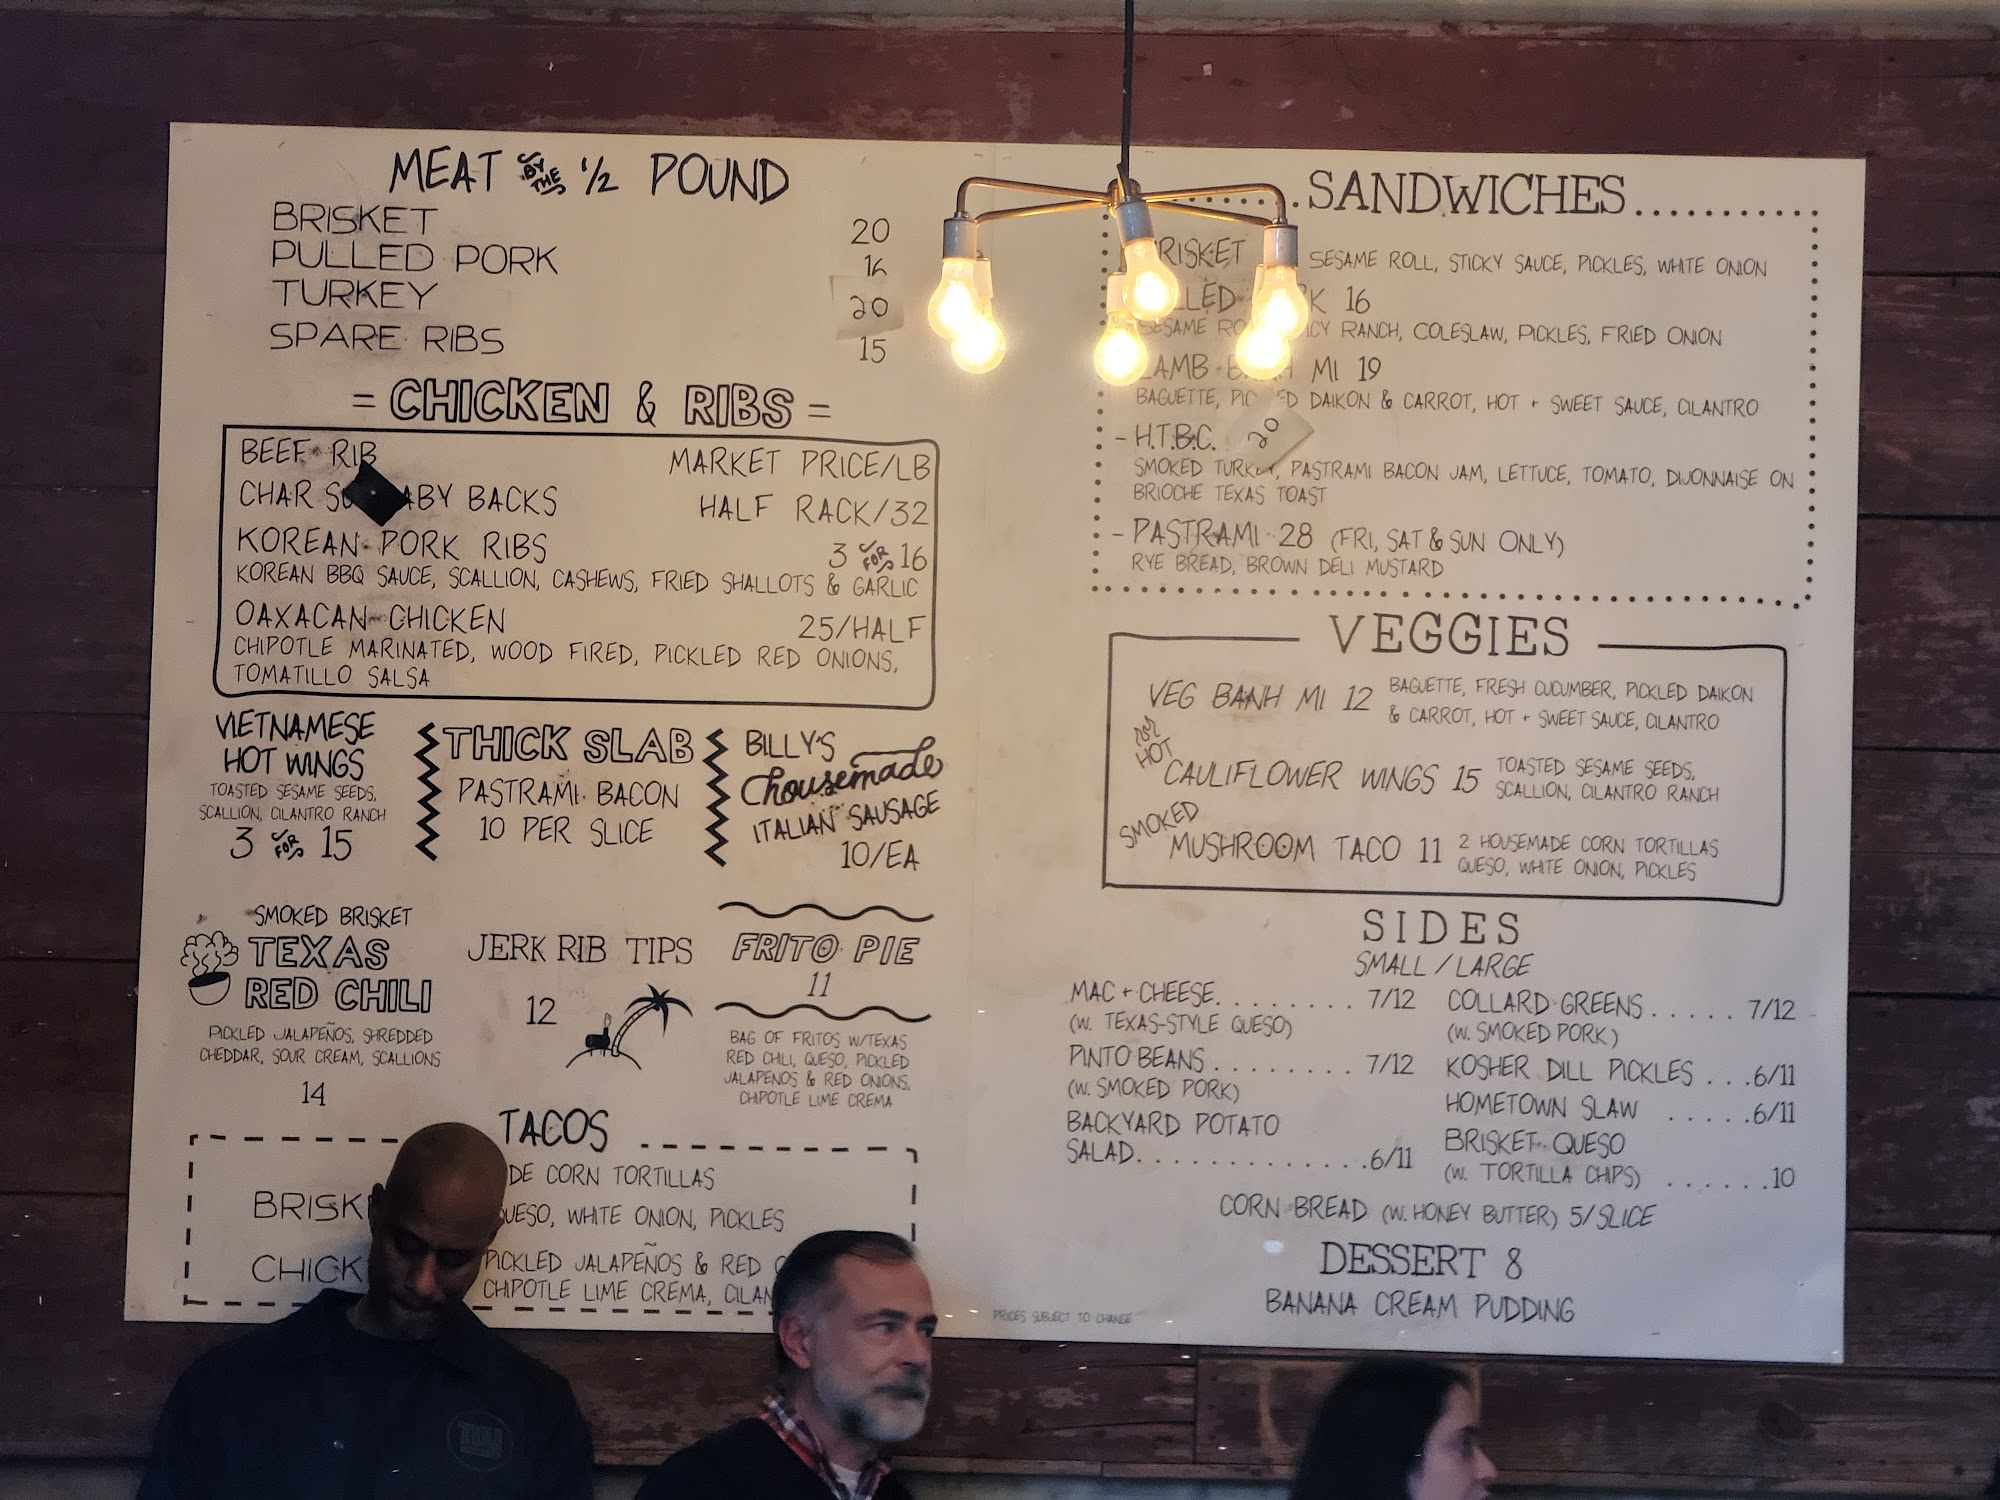 MEAT BY THE 1/2 POUND
BRISKET 20
PULLED PORK 16
TURKEY 20
SPARE RIBS 15
= CHICKEN & RIBS =
BEEF RIB MARKET PRICE/LB
CHAR ABY BACKS HALF RACK/32
KOREAN PORK RIBS 3 FOR 16
KOREAN BBQ SAUCE, SCALLION, CASHEWS, FRIED SHALLOTS & GARLIC
OAXACAN CHICKEN 25/HALF
CHIPOTLE MARINATED, WOOD FIRED, PICKLED RED ONIONS,
TOMATILLO SALSA
VIETNAMESE
HOT WINGS
TOASTED SESAME SEEDS,
SCALLION, CILANTRO RANCH
3 FOR 15
THICK SLAB
PASTRAMI BACON
10 PER SLICE
BILLY'S
housemade
ITALIAN SAUSAGE
10/EA
SMOKED BRISKET
TEXAS
RED CHILI
PICKLED JALAPEÑOS, SHREDDED
CHEDDAR, SOUR CREAM, SCALLIONS
14
JERK RIB TIPS
12
FRITO PIE
11
BAG OF FRITOS W/TEXAS
RED CHILI, QUESO, PICKLED
JALAPENOS & RED ONIONS,
CHIPOTLE LIME CREMA
TACOS
DE CORN TORTILLAS
BRISK QUESO, WHITE ONION, PICKLES
CHICK PICKLED JALAPEÑOS & RED
CHIPOTLE LIME CREMA, CILAN
PRICES SUBJECT TO CHANGE
SANDWICHES
RISKET SESAME ROLL, STICKY SAUCE, PICKLES, WHITE ONION
LLED K 16
SESAME RO CY RANCH, COLESLAW, PICKLES, FRIED ONION
LAMB B H MI 19
BAGUETTE, PIC ED DAIKON & CARROT, HOT + SWEET SAUCE, CILANTRO
- H.T.B.C. 20
SMOKED TURKEY, PASTRAMI BACON JAM, LETTUCE, TOMATO, DIJONNAISE ON
BRIOCHE TEXAS TOAST
- PASTRAMI 28 (FRI, SAT & SUN ONLY)
RYE BREAD, BROWN DELI MUSTARD
VEGGIES
VEG BANH MI 12 BAGUETTE, FRESH CUCUMBER, PICKLED DAIKON
& CARROT, HOT + SWEET SAUCE, CILANTRO
HOT
CAULIFLOWER WINGS 15 TOASTED SESAME SEEDS,
SCALLION, CILANTRO RANCH
SMOKED
MUSHROOM TACO 11 2 HOUSEMADE CORN TORTILLAS
QUESO, WHITE ONION, PICKLES
SIDES
SMALL / LARGE
MAC + CHEESE........ 7/12
(W. TEXAS-STYLE QUESO)
PINTO BEANS ........ 7/12
(W. SMOKED PORK)
BACKYARD POTATO
SALAD.............6/11
COLLARD GREENS ..... 7/12
(W. SMOKED PORK)
KOSHER DILL PICKLES ...6/11
HOMETOWN SLAW .....6/11
BRISKET QUESO
(W. TORTILLA CHIPS) ......10
CORN BREAD (W. HONEY BUTTER) 5/SLICE
DESSERT 8
BANANA CREAM PUDDING